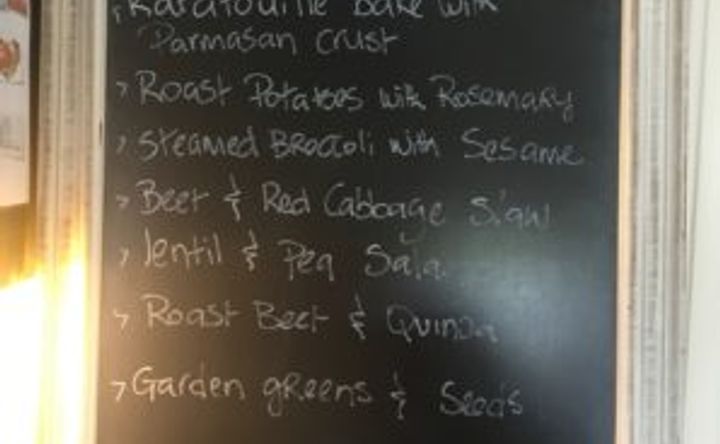 > Ratatouille bake with
Parmasan crust
> Roast Potatoes with Rosemary
> Steamed Broccoli with Sesame
> Beet & Red Cabbage Slaw
> lentil & Pea Sala
> Roast Beet & Quinoa
> Garden greens & Seeds